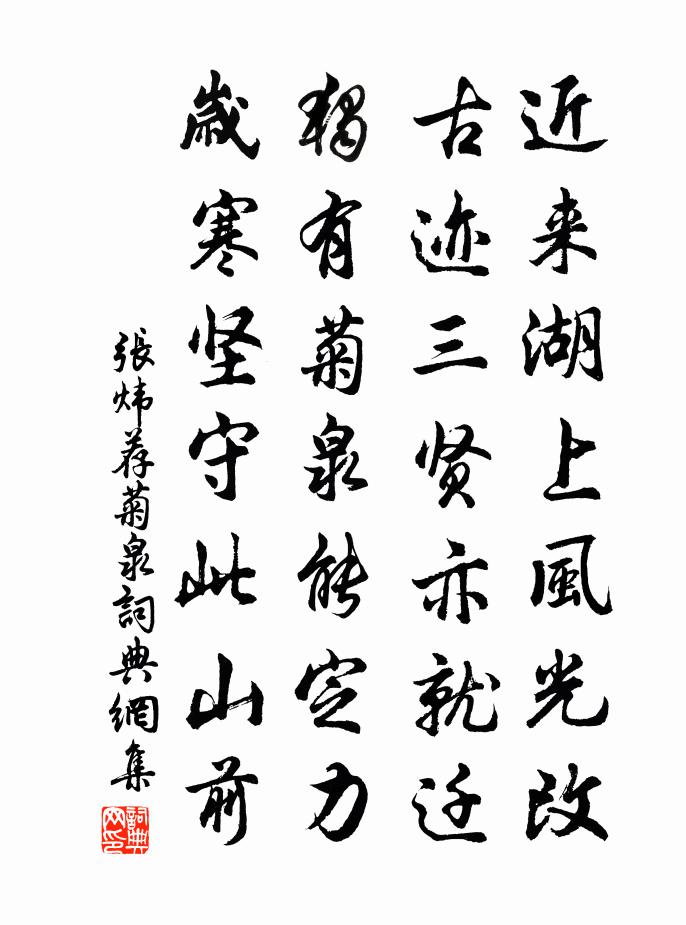 近来湖上風光改
古迹三贤亦就迁
独有菊泉能定力
歲寒坚守此山前
張炜荐菊泉詞典網集
詞典网印